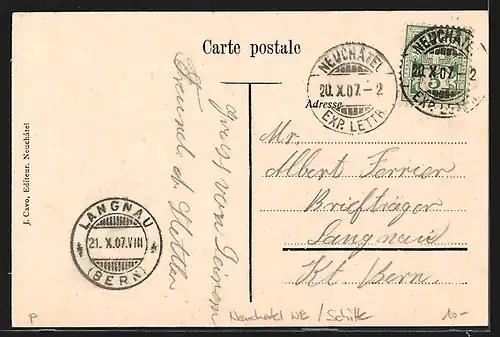 Carte postale
NEUCHÂTEL
20.X.07.-2
EXP. LETTR.
NEUCHÂTEL
20.X.07.-2
EXP. LETTR.
5
Adresse
Mr.
Albert Ferrier
Briefträger
Langnau
Kt. Bern.
Gruss von Deinem
Freund
J. Cavo, Editeur, Neuchâtel
LANGNAU
21.X.07.VIII
(BERN)
P
Neuchatel NE / Schiffe
10.-